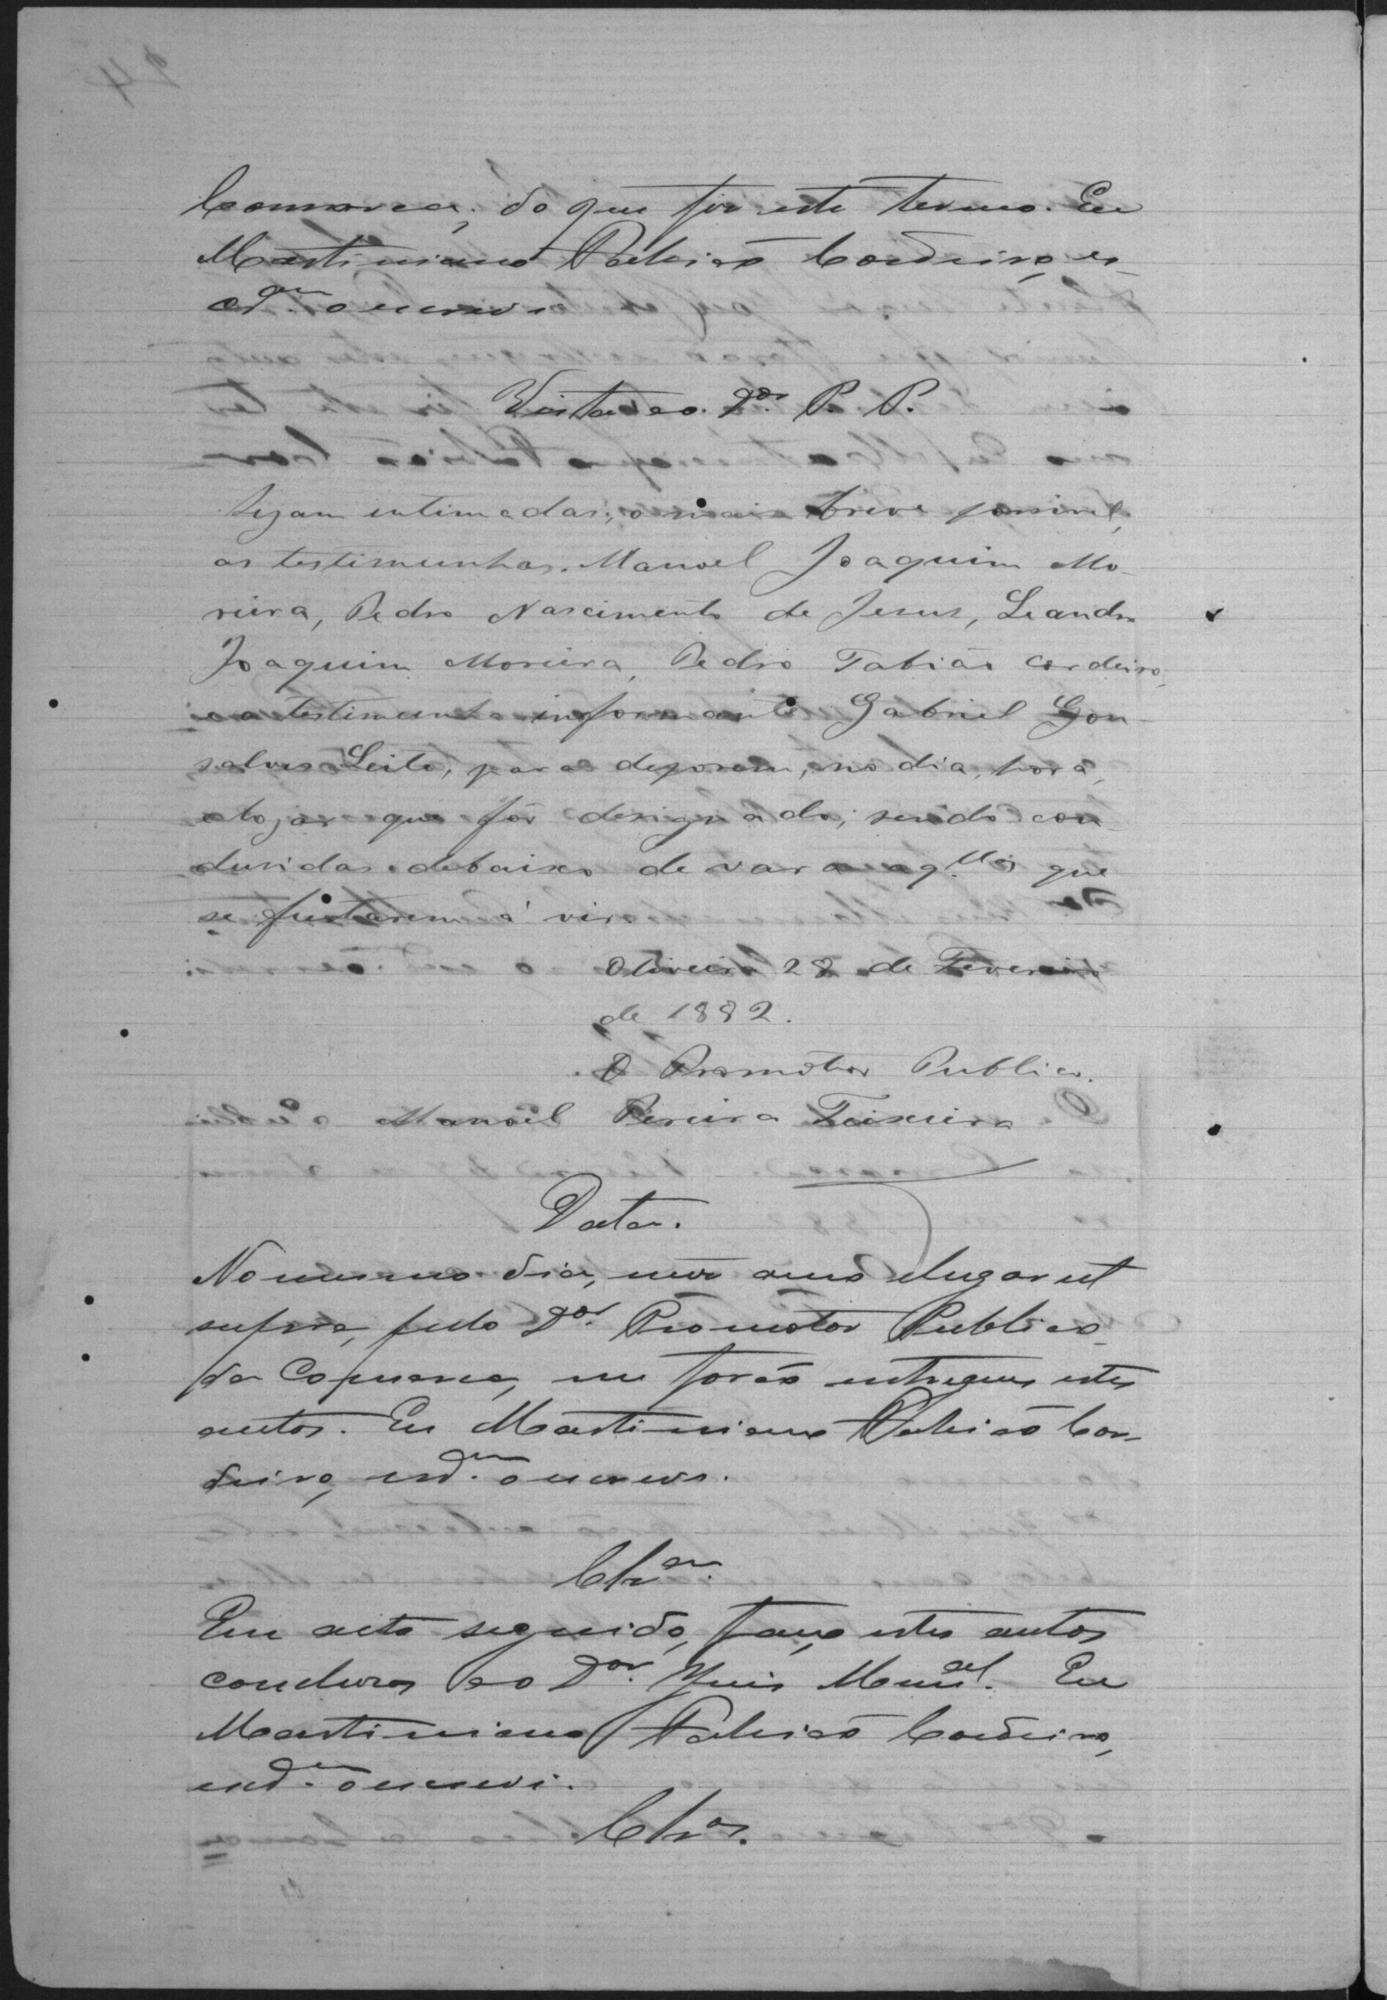 Comarca; do que fiz este termo. Eu
Martiniano Fabião Cordeiro, es-
cr.am o escrevi.
Vista ao Dor. P. P.
Sejam intimadas, o mais breve possivel,
as testimunhas. Manoel Joaquim Mo-
reira, Pedro Nascimento de Jesus, Leandro
Joaquim Moreira, Pedro Fabião Cordeiro,
e a testimunha informante Gabriel Gon-
salves Leite, para deporem, no dia, hora,
e logar que fôr designado; sendo con-
dusidas debaixo de vara aq.llas que
se furtarem á vir.
Oliveira 28 de Fevereiro
de 1882.
O Promotor Publico.
Manoel Pereira Teixeira
Data.
No mesmo dia, mez anno e lugar ut
supra, pelo Dor. Promotor Publico
da Comarca, me forão entregues estes
autos. Eu Martiniano Fabião Cor-
deiro, escr.am o escrevi.
Clsam.
Em acto seguido, faço estes autos
conclusos ao Dor. Juis Mun.al. Eu
Martiniano Fabião Cordeiro,
escr.am o escrevi.
Clsos.